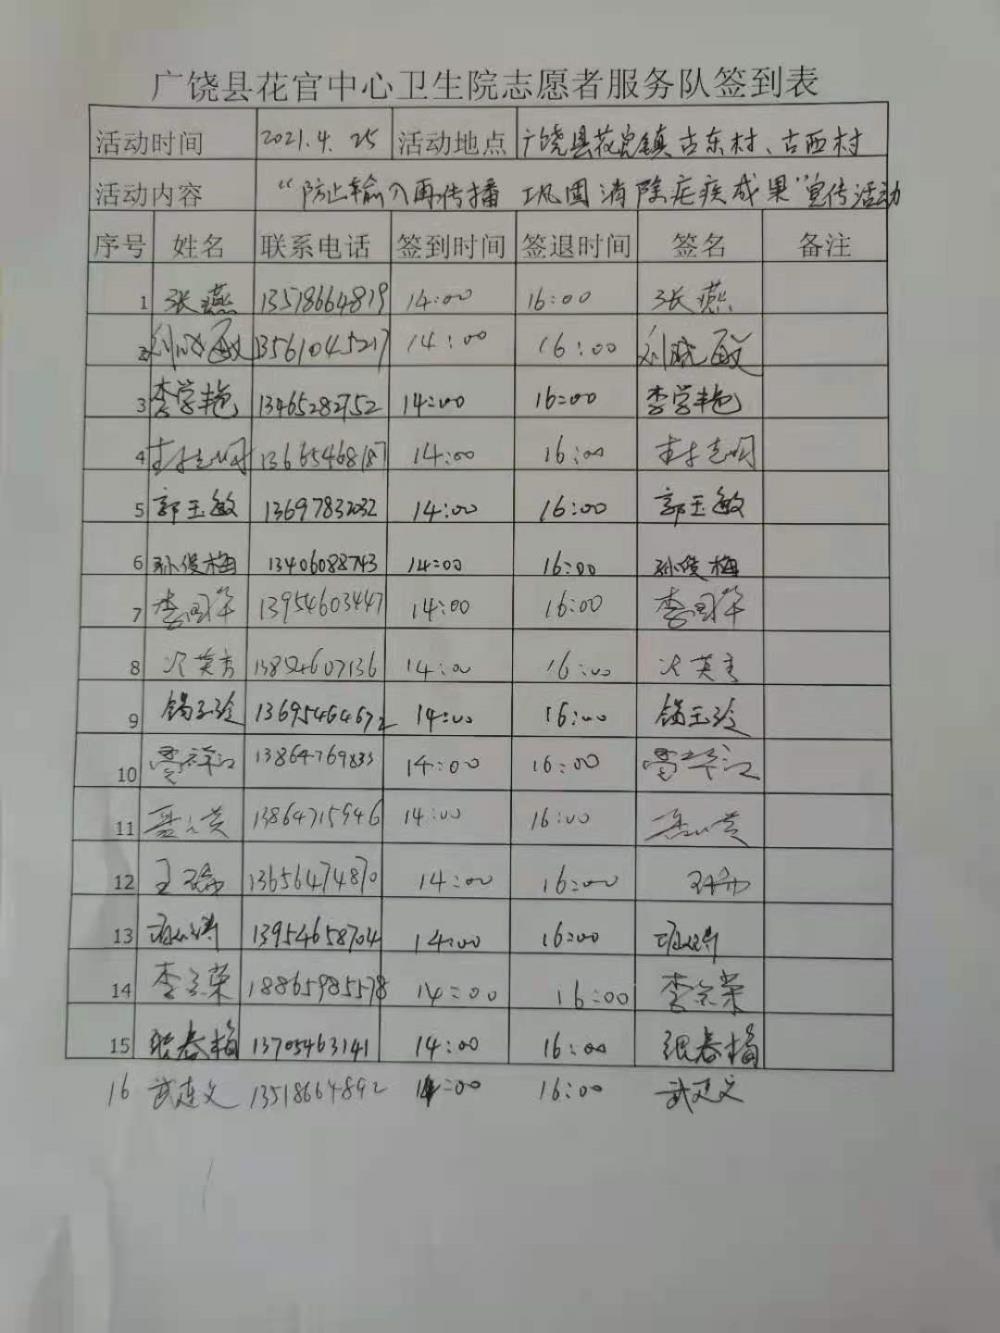 广饶县花官中心卫生院志愿者服务队签到表
活动时间 2021.4.25 活动地点 广饶县花官镇古东村、古西村
活动内容 “防止输入再传播 巩固消除疟疾成果”宣传活动
序号 姓名 联系电话 签到时间 签退时间 签名 备注
1 张燕 13518664819 14:00 16:00 张燕
2 刘成敏 13561045217 14:00 16:00 刘成敏
3 李学艳 13465282752 14:00 16:00 李学艳
4 志明 13665468187 14:00 16:00 志明
5 郭玉敏 13697832032 14:00 16:00 郭玉敏
6 孙俊梅 13406088743 14:00 16:00 孙俊梅
7 李国华 13954603447 14:00 16:00 李国华
8 13854607136 14:00 16:00
9 玉玲 13695464672 14:00 16:00 玉玲
10 13864769833 14:00 16:00
11 13864715946 14:00 16:00
12 王 13656474870 14:00 16:00
13 13954658704 14:00 16:00
14 李京荣 18865985578 14:00 16:00 李京荣
15 张春梅 13705463141 14:00 16:00 张春梅
16 武建文 13518664892 14:00 16:00 武建文